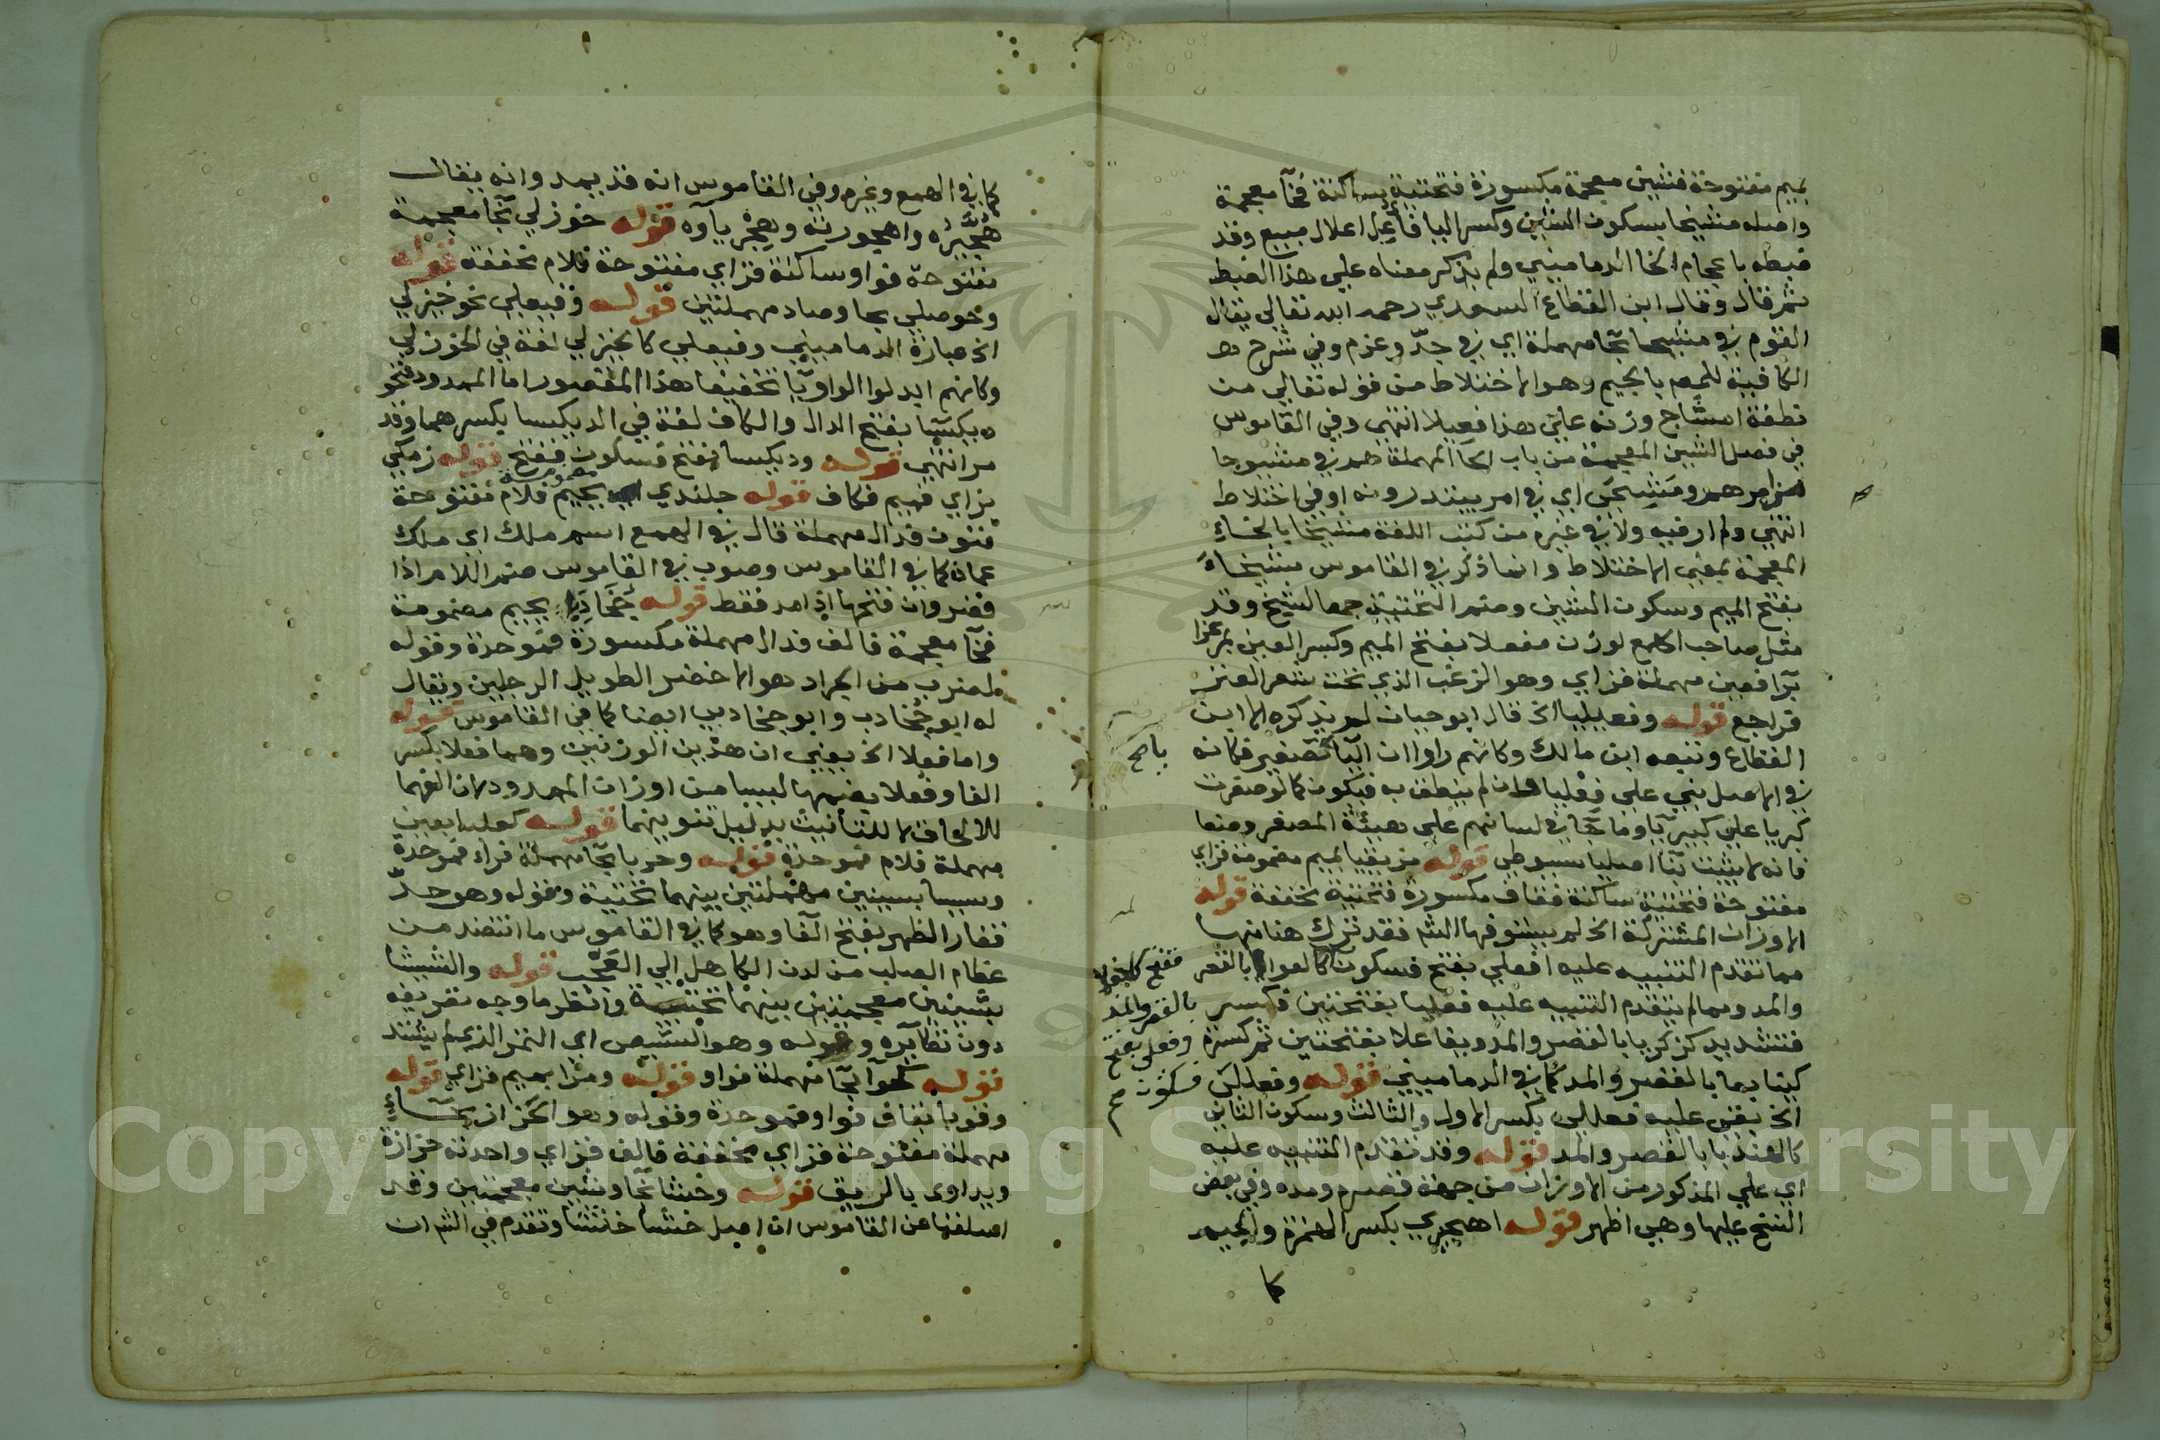 بميم مفتوحة فشين معجمة مكسورة فتحتية ساكنة فخآ معجمة
واصله مشيخا بسكون الشين وكسر اليا فأعل اعلال مبيع وقد
ضبطه باعجام الخا الدماميني ولم يذكر معناه علي هذا الضبط
ثم قال وقال ابن القطاع السعدي رحمه الله تعالي يقال
القوم في مشيحا بحا مهملة اي في جدّ وعزم وفي شرح
الكافية للمصم بالجيم وهو الاختلاط من قوله تعالي من
نطفة امشاج وزنه علي هذا فعيلا انتهي وفي القاموس
في فصل الشين المعجمة من باب الحآ المهملة هم في مشيوحا
من امرهم ومشيحي اي في امر يبتدرونه او في اختلاط
انتهي ولم ار فيه ولا في غيره من كتب اللغة مشيخا بالخاء
المعجمة بمعني الاختلاط وانما ذكر في القاموس مشيخاء
بفتح الميم وسكون الشين وضم التحتية جمعا لشيخ وقد
مثل صاحب الهمع لوزن مفعلا بفتح الميم وكسر العين بمرعزا
برآ فعين مهملة فزاي وهو الزغب الذي تحت شعر العنز
فراجع قوله وفعيليا الخ قال ابو حيان لم يذكره الا ابن
القطاع وتبعه ابن مالك وكانهم راوا ان اليآ للتصغير فكانه
في الاصل بني علي فعليا وان لم ينطق به فيكون كما لو صغرت
كبريا علي كبيريآ وما جا في لسانهم علي هيئة المصغر وضعا
فانه لا يثبت بنا اصليا سيوطي قوله مزيقيا بميم مضمومة فزاي
مفتوحة فتحتية ساكنة فقاف مكسورة فتحتية مخففة قوله
الاوزان المشتركة الخ لم يستوفها الشم فقد ترك هنا منها
مما تقدم التنبيه عليه افعلي بفتح فسكون كالعوا بالقصر
والمد ومما لم يتقدم التنبيه عليه فعليا بفتحتين فكسر
فتشديد كزكريا بالقصر والمد ويفاعلا بفتحتين ثم كسرة
كينابعا بالقصر والمد كما في الدماميني قوله وفعللي
الخ بقي عليه فعللي بكسر الاول والثالث وسكون الثاني
كالهندبا بالقصر والمد قوله وقد تقدم التنبيه عليه
اي علي المذكور من الاوزان من جهة قصره ومده وفي بعض
النسخ عليها وهي اظهر قوله اهجيري بكسر الهمزة والجيم
كا
يا صح
بالقصر والمد
وفعلي بفتح
فسكون
كما في الهمع وغيره وفي القاموس انه قد يمد وانه يقال
هجيره واهجورته وهجريآوه قوله خوزلي بخآ معجمة
مفتوحة فواو ساكنة فزاي مفتوحة فلام مخففة قوله
وحوصلي بحا وصاد مهملتين قوله وفيعلي نحو خيزلي
الخ عبارة الدماميني وفيعلي كالخيزلي لغة في الخوزلي
وكانهم ابدلوا الواو يآ تخفيفا هذا المقصور اما الممدود فنحو
ديكسآ بفتح الدال والكاف لغة في الديكسا بكسرهما وقد
مر انتهي قوله وديكسا بفتح فسكون ففتح قوله زمكي
بزاي فميم فكاف قوله جلندي بجيم مضمومة فلام مفتوحة
فنون فدال مهملة قال في الهمع اسم ملك اي ملك
عمان كما في القاموس وصوب في القاموس ضم اللام اذا
قصر وان فتحها اذا مد فقط قوله جخادبا بجيم مضمومة
فخآ معجمة فالف فدال مهملة مكسورة فموحدة وقوله
لضرب من الجراد هو الاخضر الطويل الرجلين ويقال
له ابو جخادب وابو جخادبي ايضا كما في القاموس قوله
واما فعلا الخ يعني ان هذين الوزنين وهما فعلا بكسر
الفا وفعلا بضمها ليسا من اوزان الممدود لان الفهما
للالحاق لا للتانيث بدليل تنوينهما قوله كعلبا بعين
مهملة فلام فموحدة قوله وحربا بحآ مهملة فراء فموحدة
وسيسا بسينين مهملتين بينهما تحتية وقوله وهو حدّ
فقار الظهر بفتح الفآ وهو كما في القاموس ما انتضد من
عظام الصلب من لدن الكاهل الي العجب قوله والشيشا
بشينين معجمتين بينهما تحتية وانظر ما وجه تعريفه
دون نظآيره وقوله وهو الشيص اي التمر الذي لم يشتد
قوله كحوا بحآ مهملة فواو قوله ومزا بميم فزاي قوله
وقوبا بقاف فواو فموحدة وقوله وهو الحزاز بحاء
مهملة مفتوحة فزاي مخففة فالف فزاي واحدته حزازة
ويداوي بالريق قوله وخشا بخآ وشين معجمتين وقد
اسلفنا عن القاموس ان اصل خشا خششا وتقدم في الشم ان
Copyright © King Saud University